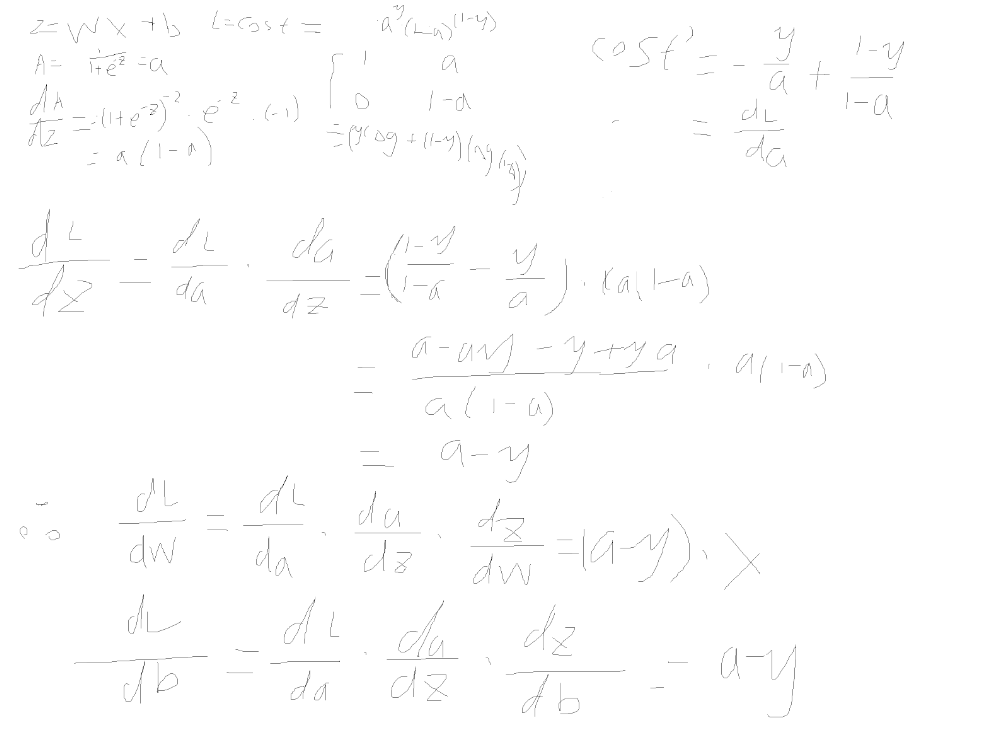 z = wx + b   L = cost = a^y (1-a)^(1-y)
A = 1/(1+e^-z) = a   { 1   a
0   1-a
dA/dz = -(1+e^-z)^-2 · e^-z · (-1)
= a(1-a)
cost' = -y/a + (1-y)/(1-a)
= dL/da
dL/dz = dL/da · da/dz = ((1-y)/(1-a) - y/a) · a(1-a)
= (a-ay-y+ya)/(a(1-a)) · a(1-a)
= a-y
∴ dL/dW = dL/da · da/dz · dz/dW = (a-y) · x
dL/db = dL/da · da/dz · dz/db = a-y